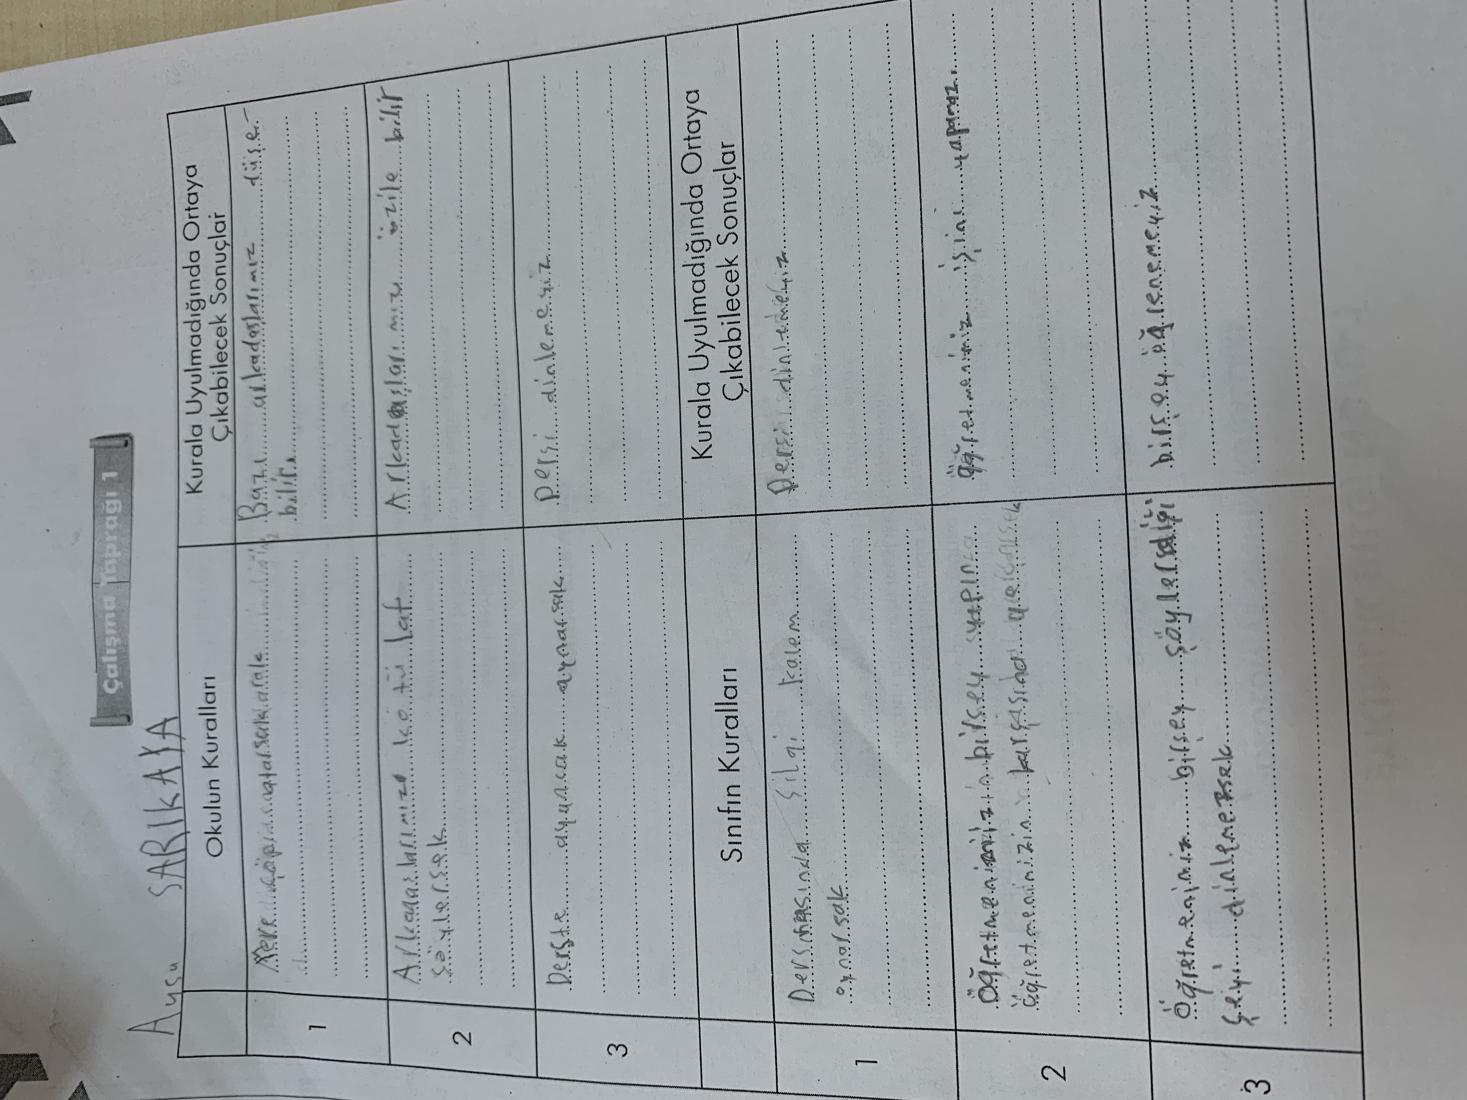 Aysu SARIKAYA
Çalışma Yaprağı 1
Okulun Kuralları
Kurala Uyulmadığında Ortaya
Çıkabilecek Sonuçlar
1
Yere çöp atarsak
Bazı arkadaşlarımız düşe-
bilir.
2
Arkadaşlarımıza kötü laf
söylersek
Arkadaşlarımız üzile bilir
3
Derste oyuncak oynarsak
Dersi dinlemeyiz
Sınıfın Kuralları
Kurala Uyulmadığında Ortaya
Çıkabilecek Sonuçlar
1
Ders silgi kalem
oynarsak
Dersi dinlemeyiz
2
Öğretmenimizin birşey
Öğretmenimizin
Öğretmenimiz işini yapamaz.
3
Öğretmenimiz birşey
şeyi dinlemezsek
birşey öğrenemeyiz